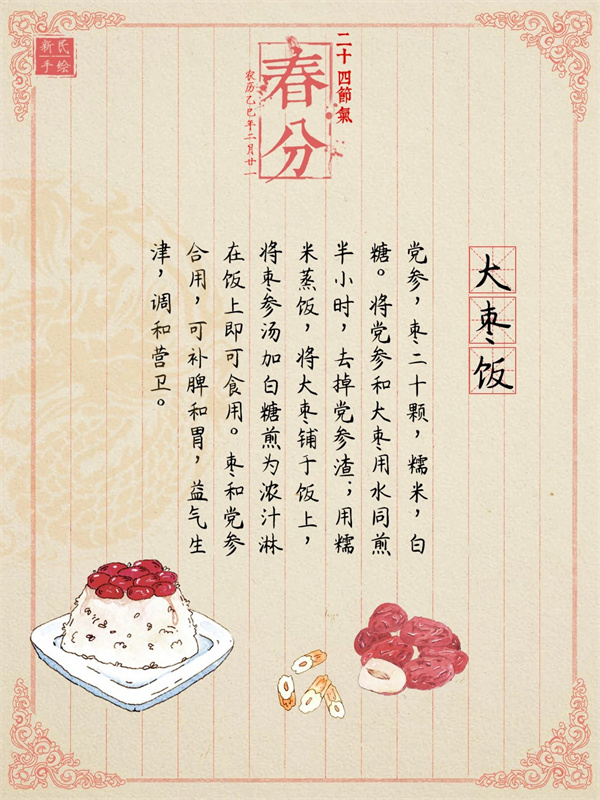 新氏
手绘
二十四節氣
春分
农历乙巳年二月廿一
大枣饭
党参，枣二十颗，糯米，白
糖。将党参和大枣用水同煎
半小时，去掉党参渣；用糯
米蒸饭，将大枣铺于饭上，
将枣参汤加白糖煎为浓汁淋
在饭上即可食用。枣和党参
合用，可补脾和胃，益气生
津，调和营卫。